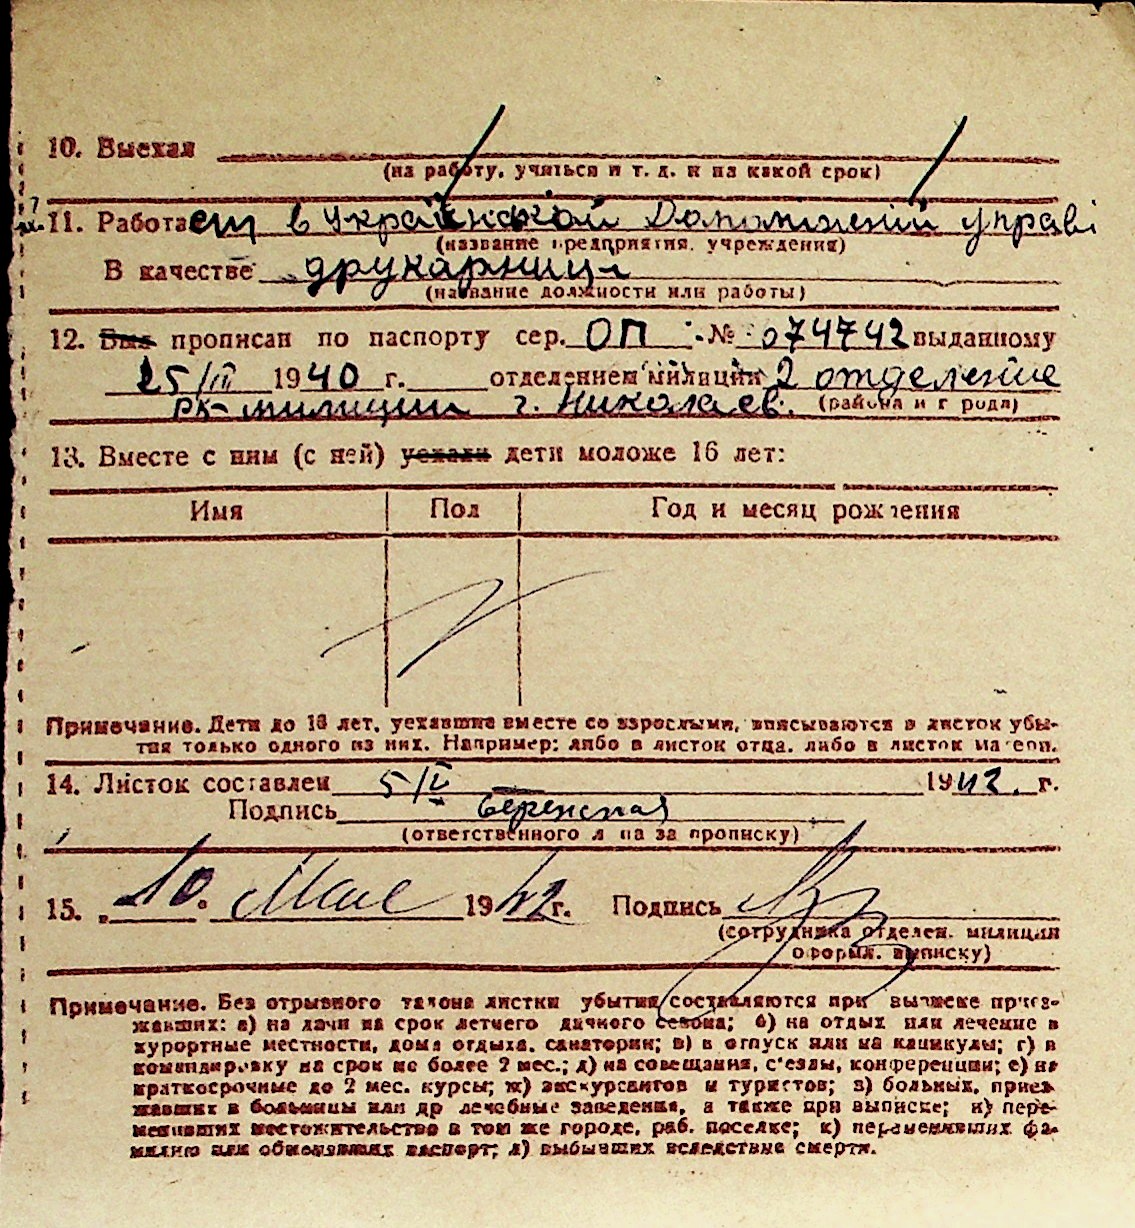 10. Выехал
(на работу, учиться и т. д. и на какой срок)
11. Работает в Української Допоміжній управі
(название предприятия, учреждения)
В качестве друкарниці
(название должности или работы)
12. Был прописан по паспорту сер. ОП № 074742 выданному
25/III 1940 г. отделением милиции 2 отделение
РК милиции г. Николаев. (района и города)
13. Вместе с ним (с ней) уехали дети моложе 16 лет:
Имя Пол Год и месяц рождения
Примечание. Дети до 16 лет, уехавшие вместе со взрослыми, вписываются в листок убы-
тия только одного из них. Например: либо в листок отца, либо в листок матери.
14. Листок составлен 5/V 1942. г.
Подпись
(ответственного лица за прописку)
15. „10. Мае 1942 г. Подпись
(сотрудника отделен. милиции
оформл. выписку)
Примечание. Без отрывного талона листки убытия составляются при выписке приез-
жавших: а) на дачи на срок летнего дачного сезона; б) на отдых или лечение в
курортные местности, дома отдыха, санатории; в) в отпуск или на каникулы; г) в
командировку на срок не более 2 мес.; д) на совещания, с'езды, конференции; е) на
краткосрочные до 2 мес. курсы; ж) экскурсантов и туристов; з) больных, приез-
жавших в больницы или др лечебные заведения, а также при выписке; и) пере-
менивших местожительство в том же городе, раб. поселке; к) переменивших фа-
милию или обменявших паспорт; л) выбывших вследствие смерти.